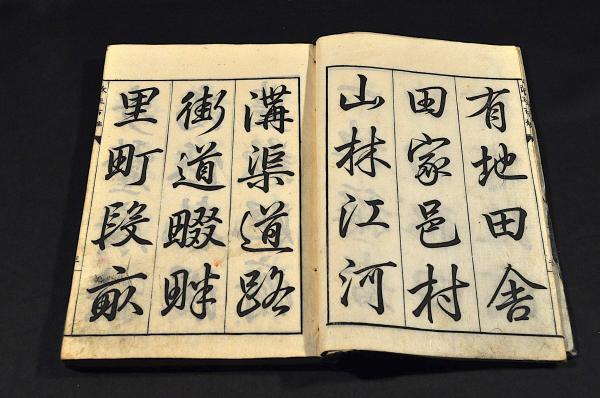 有地田舎
田家邑村
山林江河
溝渠道路
街道畷畔
里町段畝